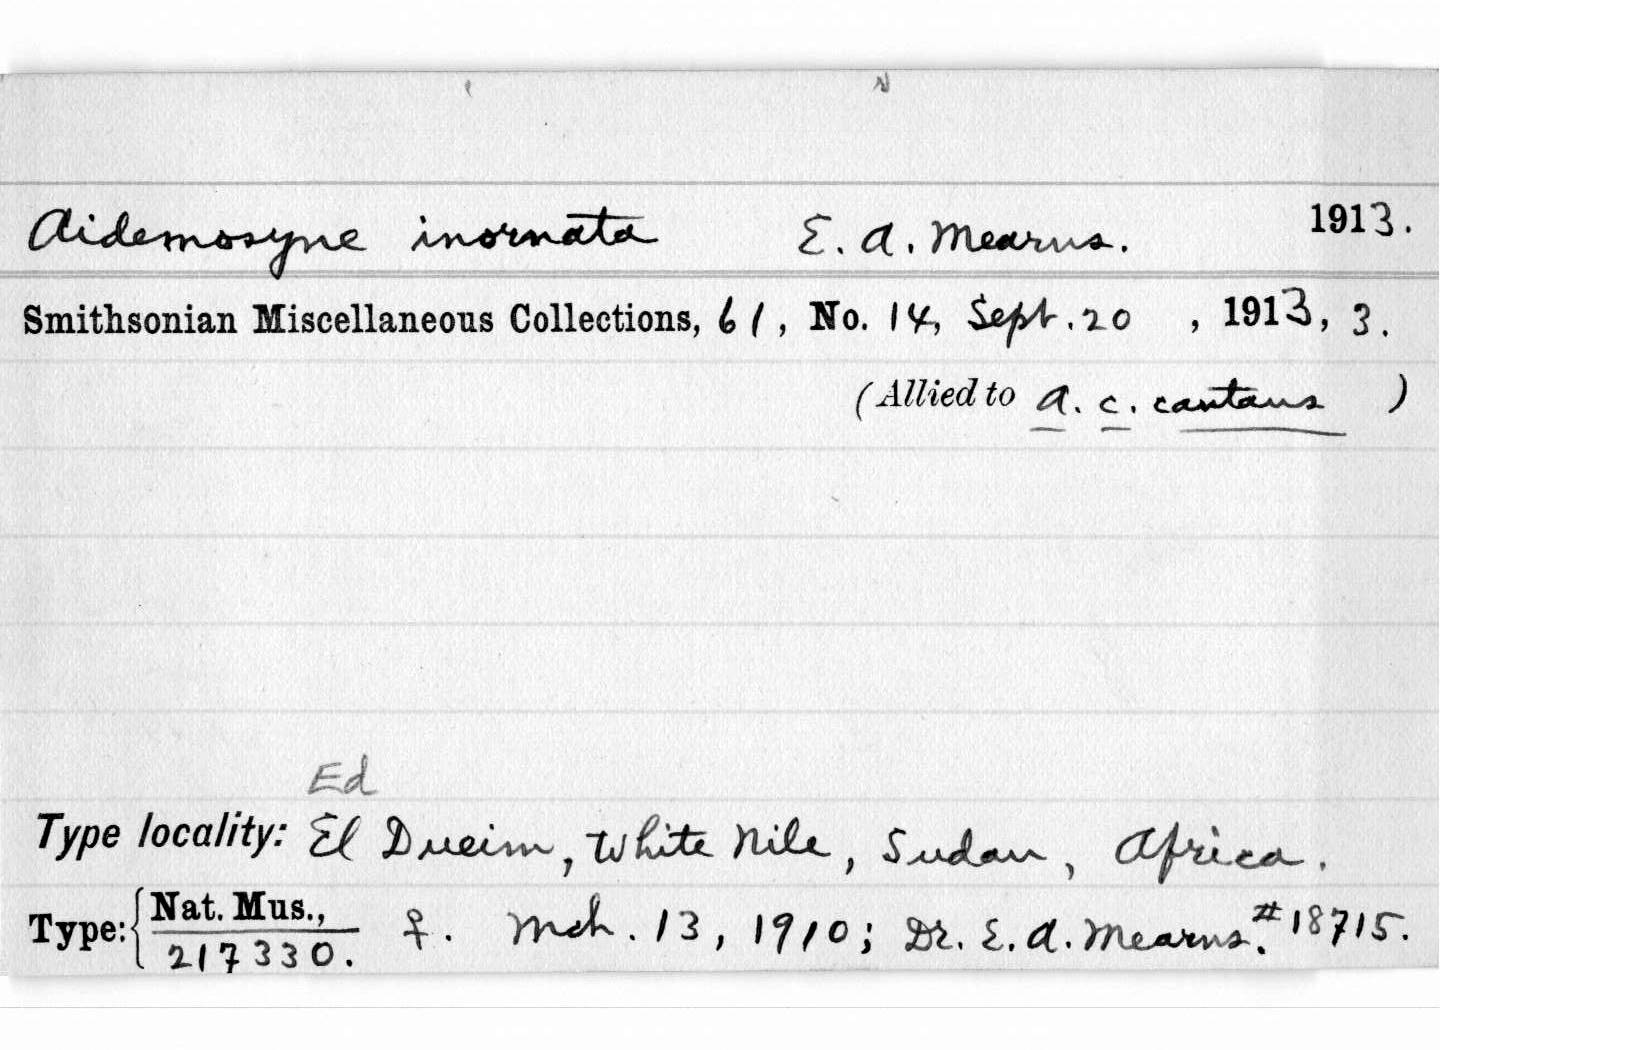 Aidemosyne inornata E. A. Mearns. 1913.
Smithsonian Miscellaneous Collections, 61, No. 14, Sept. 20 , 1913, 3.
(Allied to A. c. cantans )
Ed
Type locality: El Dueim, White Nile, Sudan, Africa.
Type: { Nat. Mus., 217330. ♀. Mch. 13, 1910; Dr. E. A. Mearns. #18715.